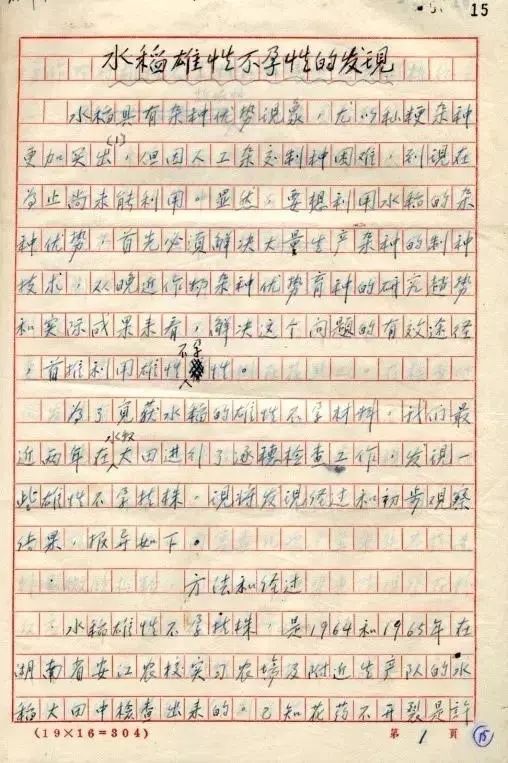 15
水稻雄性不孕性的发现
水稻具有杂种优势现象，尤以籼粳杂种
更加突出(1)，但因人工杂交制种困难，到现在
为止尚未能利用。显然，要想利用水稻的杂
种优势，首先必须解决大量生产杂种的制种
技术，从晚近作物杂种优势育种的研究趋势
和实际成果来看，解决这个问题的有效途径
，首推利用雄性不孕性。
为了觅获水稻的雄性不孕材料，我们最
近两年在水稻大田进行了逐穗检查工作，发现一
些雄性不孕植株，现将发现经过和初步观察
结果，报导如下。
方法和经过
水稻雄性不孕植株，是1964和1965年在
湖南省安江农校实习农场及附近生产队的水
稻大田中检查出来的。已知花药不开裂是許
(19×16=304) 第1頁 15